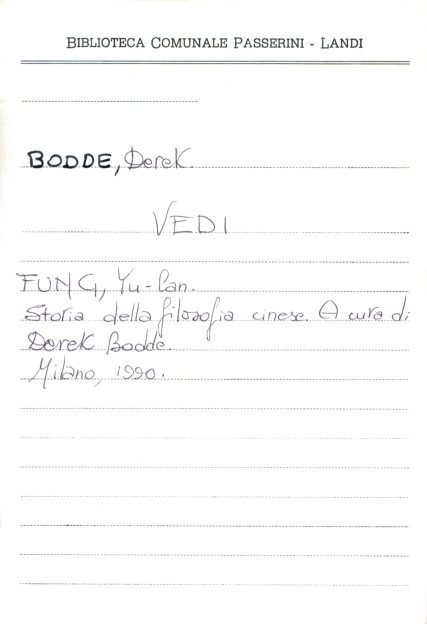 BIBLIOTECA COMUNALE PASSERINI - LANDI
BODDE, Derek
VEDI
FUNG, Yu-lan.
Storia della filosofia cinese. A cura di
Derek Bodde.
Milano, 1990.